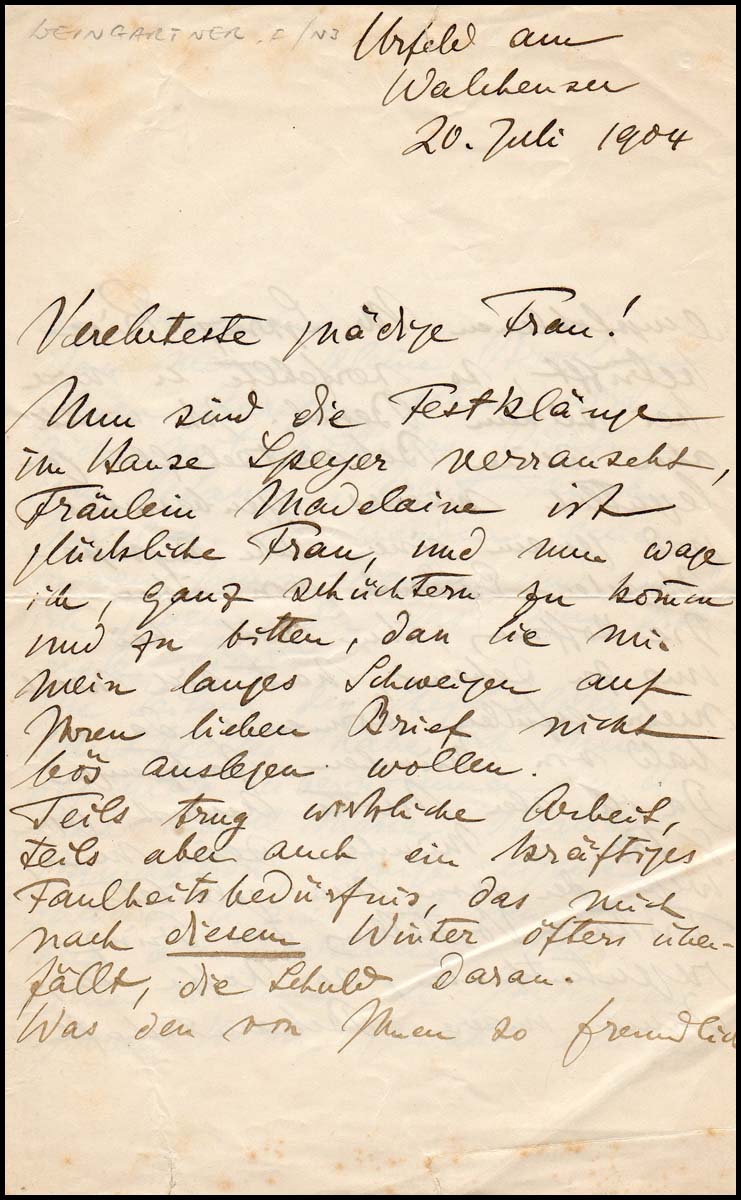 WEINGARTNER
Urfeld am
Walchensee
20. Juli 1904
Verehrteste gnädige Frau!
Nun sind die Festklänge
im Hause Speyer verrauscht,
Fräulein Madelaine ist
glückliche Frau, und nun wage
ich, ganz schüchtern zu kom̄en
und zu bitten, dass Sie mir
mein langes Schweigen auf
Ihren lieben Brief nicht
bös auslegen wollen.
Teils trug wirkliche Arbeit,
teils aber auch ein kräftiges
Faulheitsbedürfnis, das mich
nach diesem Winter öfters über-
fällt, die Schuld daran.
Was den von Ihnen so freundlich